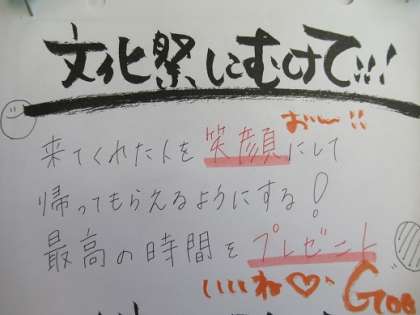 文化祭にむけて!!!
おぉ〜!!
来てくれた人を笑顔にして
帰ってもらえるようにする!
最高の時間をプレゼント
いいね♡